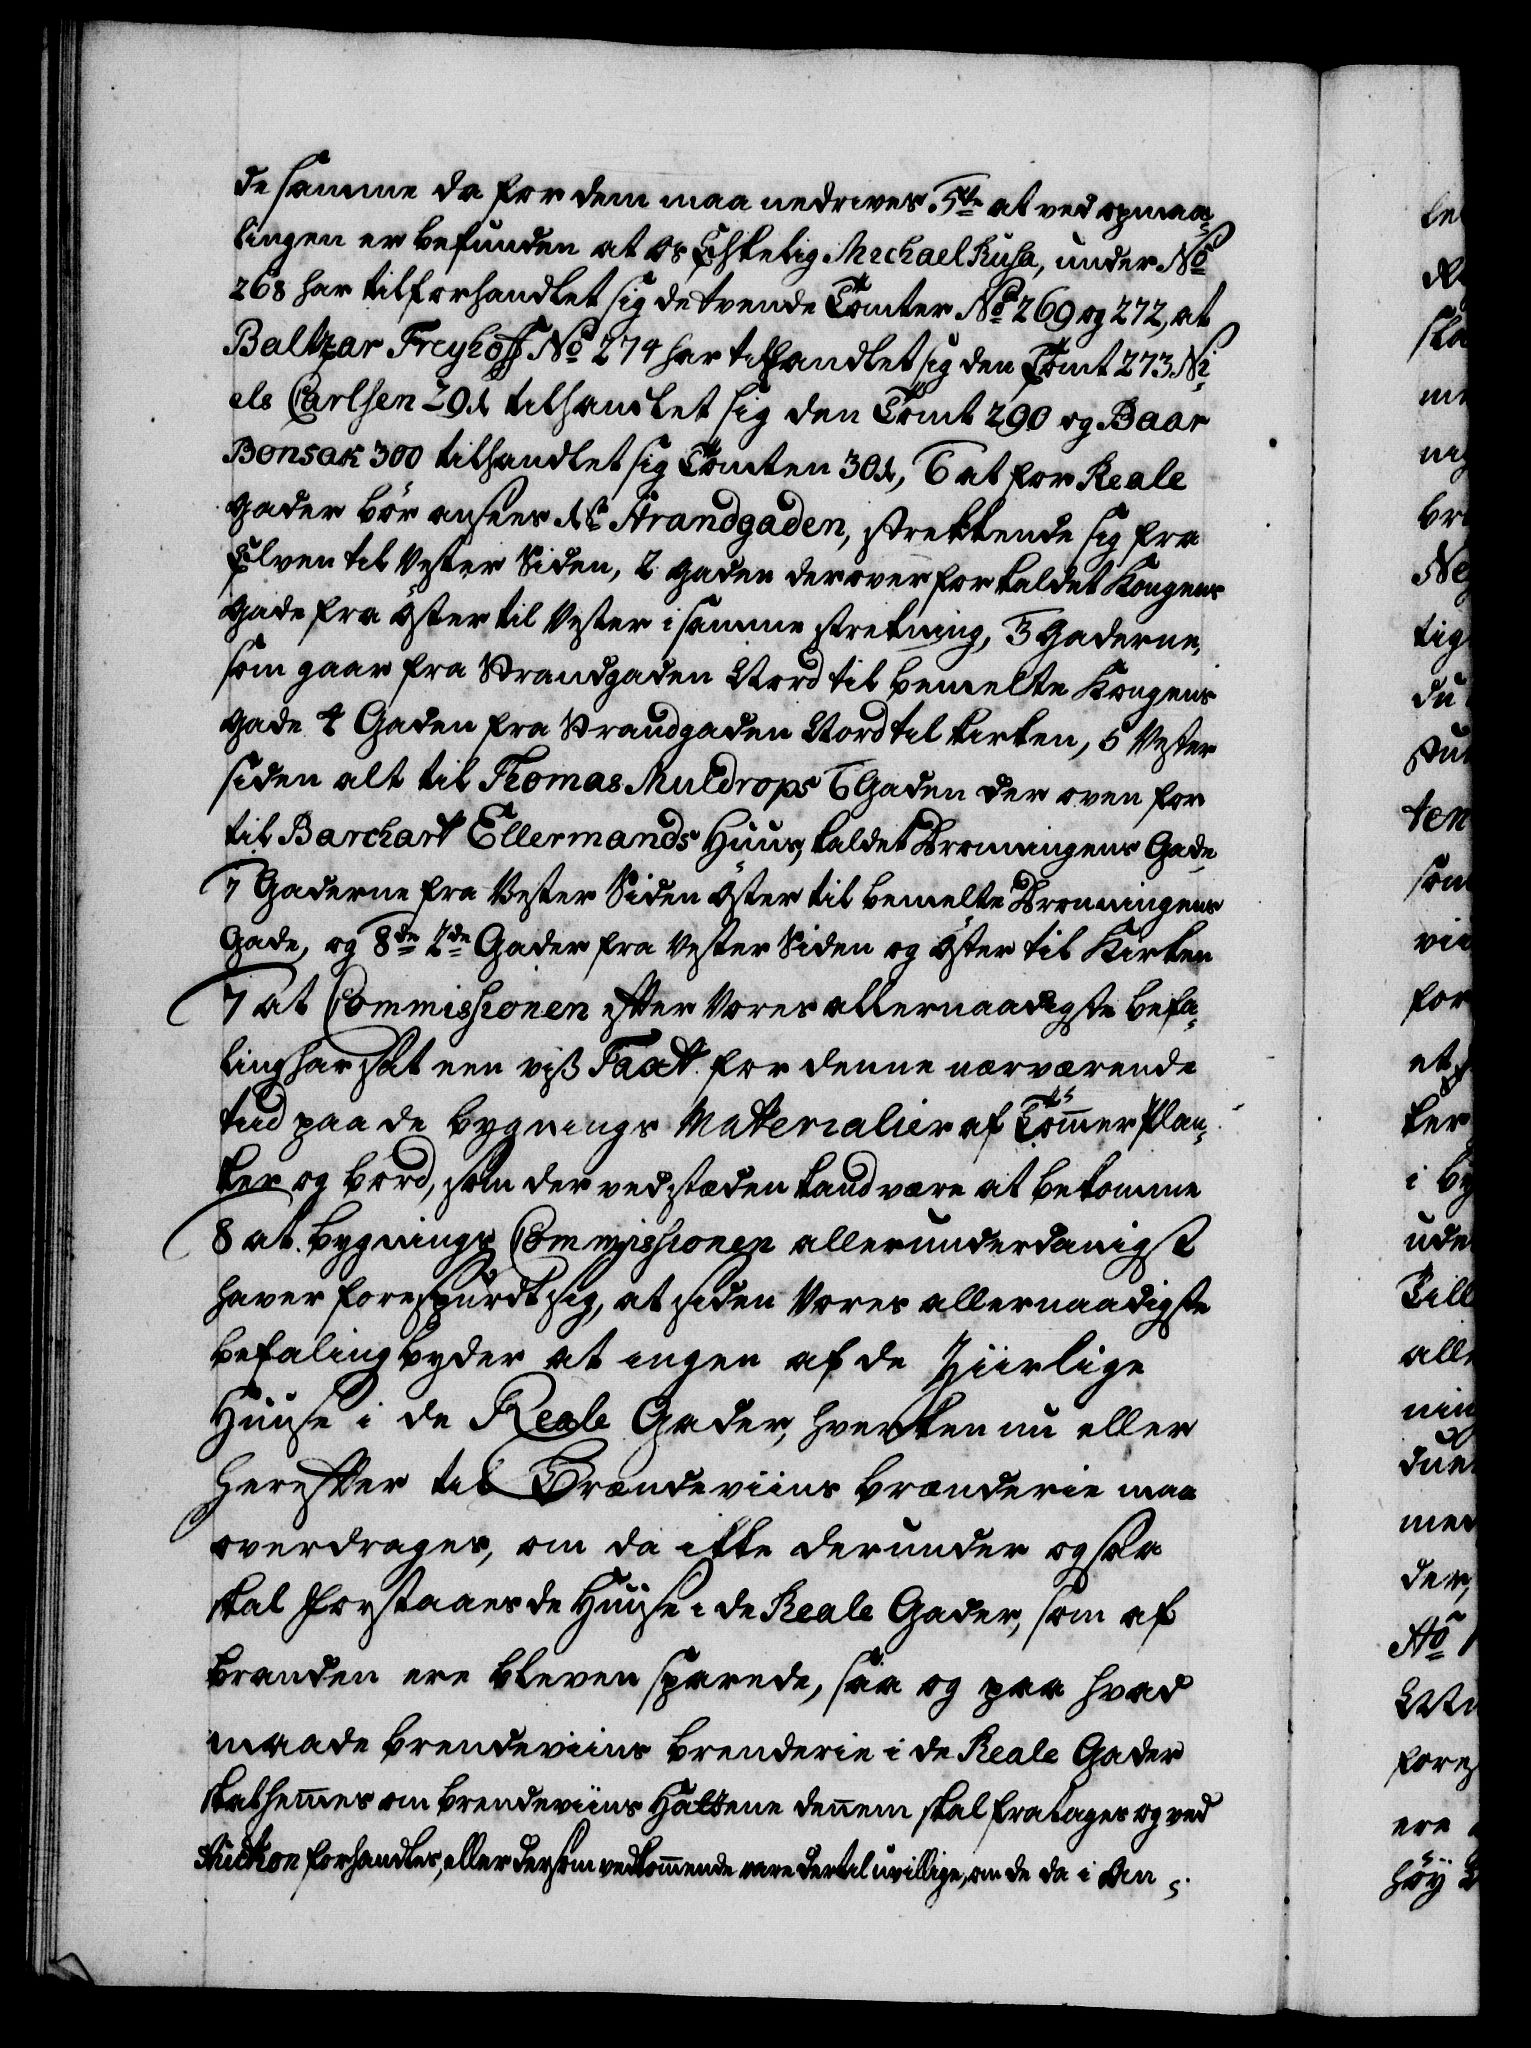 de samme da for dem maa nedrives. 5te at ved opmaa-
lingen er befunden at os Elskelig Michael Kusa, under No
268 har tilforhandlet sig de tvende Tomter No 269 og 272, at
Baltzar Freyhoff No 274 har tilhandlet sig den Tomt 273. Ni-
els Carlsen 291 tilhandlet sig den Tomt 290 og Baar
Bonsak 300 tilhandlet sig Tomten 301, 6 at for Reale
gader bör ansees 1t Strandgaden, strekkende sig fra
Elven til Vester Siden, 2 gaden derover for kaldet Kongens
gade fra Öster til Vester i samme strekning, 3 Gaderne,
som gaar fra Strandgaden Nord til bemelte Kongens
gade 4 Gaden fra Strandgaden Nord til kirken, 5 Vester
siden alt til Thomas Muldrops 6 Gaden der oven for
til Barchart Ellermands Huus, kaldet Dronningens Gade,
7 Gaderne fra Vester Siden Öster til bemelte Dronningens
Gade, og 8de 2de Gader fra Vester Siden og Öster til Kirken
7 at Commissionen efter Vores allernaadigste befa-
ling har sat een viss Taxt for denne nærværende
tiid paa de bygnings Materialier af Tömmer Plan-
ker og bord, som der ved stæden kand være at bekomme
8 at bygnings Commissionen allerunderdanigst
haver forespurdt sig, at siden Vores allernaadigste
befaling byder at ingen af de Ziirlige
Huuse i de Reale Gader, hverken nu eller
herefter til Brændeviins brænderie maa
overdrages, om da ikke derunder ogsaa
skal forstaaes de Huuse i de Reale Gader, som af
branden ere bleven sparede, saa og paa hvad
maade brendeviins brenderie i de Reale Gader
skal hemmes om brendeviins Hattene dennem skal fratages og ved
Auction forhandles, eller dersom vedkommende vare dertil uvillige, om de da i An-